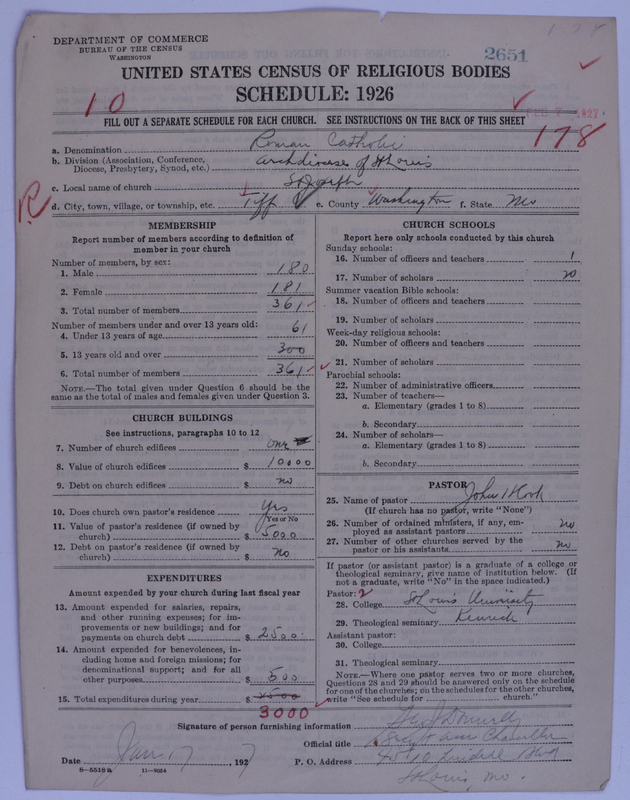 DEPARTMENT OF COMMERCE
BUREAU OF THE CENSUS
WASHINGTON
2651
UNITED STATES CENSUS OF RELIGIOUS BODIES
SCHEDULE: 1926
10
FEB 7 1927
FILL OUT A SEPARATE SCHEDULE FOR EACH CHURCH. SEE INSTRUCTIONS ON THE BACK OF THIS SHEET
178
a. Denomination Roman Catholic
b. Division (Association, Conference, Diocese, Presbytery, Synod, etc.) Archdiocese of St Louis
c. Local name of church St Joseph
R
d. City, town, village, or township, etc. Tiff e. County Washington f. State Mo
MEMBERSHIP
Report number of members according to definition of
member in your church
Number of members, by sex:
1. Male 180
2. Female 181
3. Total number of members 361
Number of members under and over 13 years old:
4. Under 13 years of age 61
5. 13 years old and over 300
6. Total number of members 361
NOTE.—The total given under Question 6 should be the
same as the total of males and females given under Question 3.
CHURCH BUILDINGS
See instructions, paragraphs 10 to 12
7. Number of church edifices one
8. Value of church edifices $ 10000
9. Debt on church edifices $ no
10. Does church own pastor's residence Yes
Yes or No
11. Value of pastor's residence (if owned by
church) $ 5000
12. Debt on pastor's residence (if owned by
church) $ no
EXPENDITURES
Amount expended by your church during last fiscal year
13. Amount expended for salaries, repairs,
and other running expenses; for im-
provements or new buildings; and for
payments on church debt $ 2500
14. Amount expended for benevolences, in-
cluding home and foreign missions; for
denominational support; and for all
other purposes $ 500
15. Total expenditures during year $
3000
CHURCH SCHOOLS
Report here only schools conducted by this church
Sunday schools:
16. Number of officers and teachers 1
17. Number of scholars 20
Summer vacation Bible schools:
18. Number of officers and teachers
19. Number of scholars
Week-day religious schools:
20. Number of officers and teachers
21. Number of scholars
Parochial schools:
22. Number of administrative officers
23. Number of teachers—
a. Elementary (grades 1 to 8)
b. Secondary
24. Number of scholars—
a. Elementary (grades 1 to 8)
b. Secondary
PASTOR
25. Name of pastor John
(If church has no pastor, write "None")
26. Number of ordained ministers, if any, em-
ployed as assistant pastors no
27. Number of other churches served by the
pastor or his assistants no
If pastor (or assistant pastor) is a graduate of a college or
theological seminary, give name of institution below. (If
not a graduate, write "No" in the space indicated.)
Pastor: 2
28. College St Louis University
29. Theological seminary Kenrick
Assistant pastor:
30. College
31. Theological seminary
NOTE.—Where one pastor serves two or more churches,
Questions 28 and 29 should be answered only on the schedule
for one of the churches; on the schedules for the other churches,
write "See schedule for church."
Signature of person furnishing information
Official title Chancellor
Date Jan 17 1927 P. O. Address Lindell Blvd
St Louis, Mo.
8—5518a 11—9054